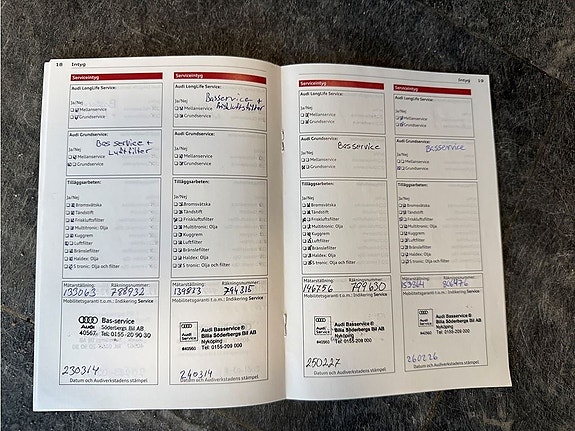 18 Intyg
Serviceintyg
Audi LongLife Service:
Ja/Nej
Mellanservice
Grundservice
Audi Grundservice:
Basservice +
Luftfilter
Ja/Nej
Mellanservice
Grundservice
Tilläggsarbeten:
Ja/Nej
Bromsvätska
Tändstift
Friskluftsfilter
Multitronic: Olja
Kuggrem
Luftfilter
Bränslefilter
Haldex: Olja
S tronic: Olja och filter
Mätarställning: Räkningsnummer:
133063 788932
Mobilitetsgaranti t.o.m.: Indikering Service
Bas-service
Audi Söderbergs Bil AB
40567 Tel: 0155-20 90 30
230314
Datum och Audiverkstadens stämpel
Serviceintyg
Audi LongLife Service:
Basservice +
friskluftsfilter
Ja/Nej
Mellanservice
Grundservice
Audi Grundservice:
Ja/Nej
Mellanservice
Grundservice
Tilläggsarbeten:
Ja/Nej
Bromsvätska
Tändstift
Friskluftsfilter
Multitronic: Olja
Kuggrem
Luftfilter
Bränslefilter
Haldex: Olja
S tronic: Olja och filter
Mätarställning: Räkningsnummer:
139823 794315
Mobilitetsgaranti t.o.m.: Indikering Service
Audi Basservice ®
Bilia Söderbergs Bil AB
Nyköping
Tel: 0155-209 000
240314
Datum och Audiverkstadens stämpel
Intyg 19
Serviceintyg
Audi LongLife Service:
Ja/Nej
Mellanservice
Grundservice
Audi Grundservice:
Basservice
Ja/Nej
Mellanservice
Grundservice
Tilläggsarbeten:
Ja/Nej
Bromsvätska
Tändstift
Friskluftsfilter
Multitronic: Olja
Kuggrem
Luftfilter
Bränslefilter
Haldex: Olja
S tronic: Olja och filter
Mätarställning: Räkningsnummer:
146756 799630
Mobilitetsgaranti t.o.m.: Indikering Service
Audi Basservice ®
Bilia Söderbergs Bil AB
Nyköping
Tel: 0155-209 000
250227
Datum och Audiverkstadens stämpel
Serviceintyg
Audi LongLife Service:
Ja/Nej
Mellanservice
Grundservice
Audi Grundservice:
Basservice
Ja/Nej
Mellanservice
Grundservice
Tilläggsarbeten:
Ja/Nej
Bromsvätska
Tändstift
Friskluftsfilter
Multitronic: Olja
Kuggrem
Luftfilter
Bränslefilter
Haldex: Olja
S tronic: Olja och filter
Mätarställning: Räkningsnummer:
Mobilitetsgaranti t.o.m.: Indikering Service
Audi Basservice ®
Bilia Söderbergs Bil AB
Nyköping
Tel: 0155-209 000
260226
Datum och Audiverkstadens stämpel